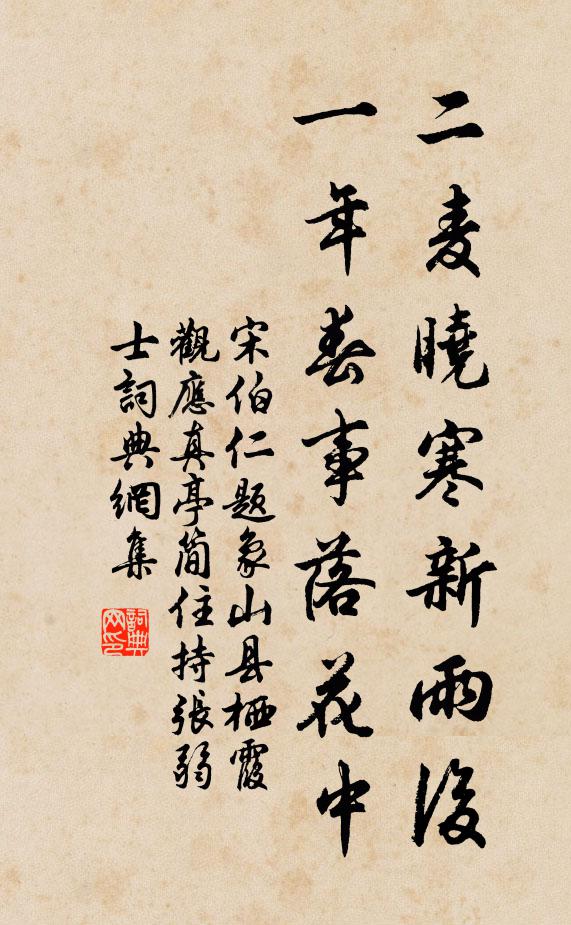 二麦曉寒新雨後
一年春事落花中
宋伯仁题象山县栖霞
觀應真亭简住持張弱
士詞典網集
詞典
网印